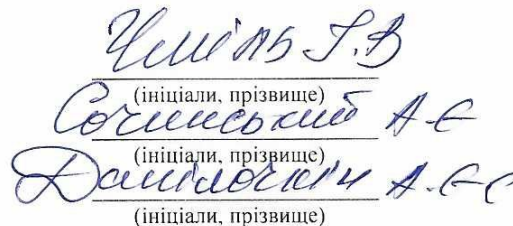 Чміль
(ініціали, прізвище)
Сочинський А.Є
(ініціали, прізвище)
Данілочкін
(ініціали, прізвище)